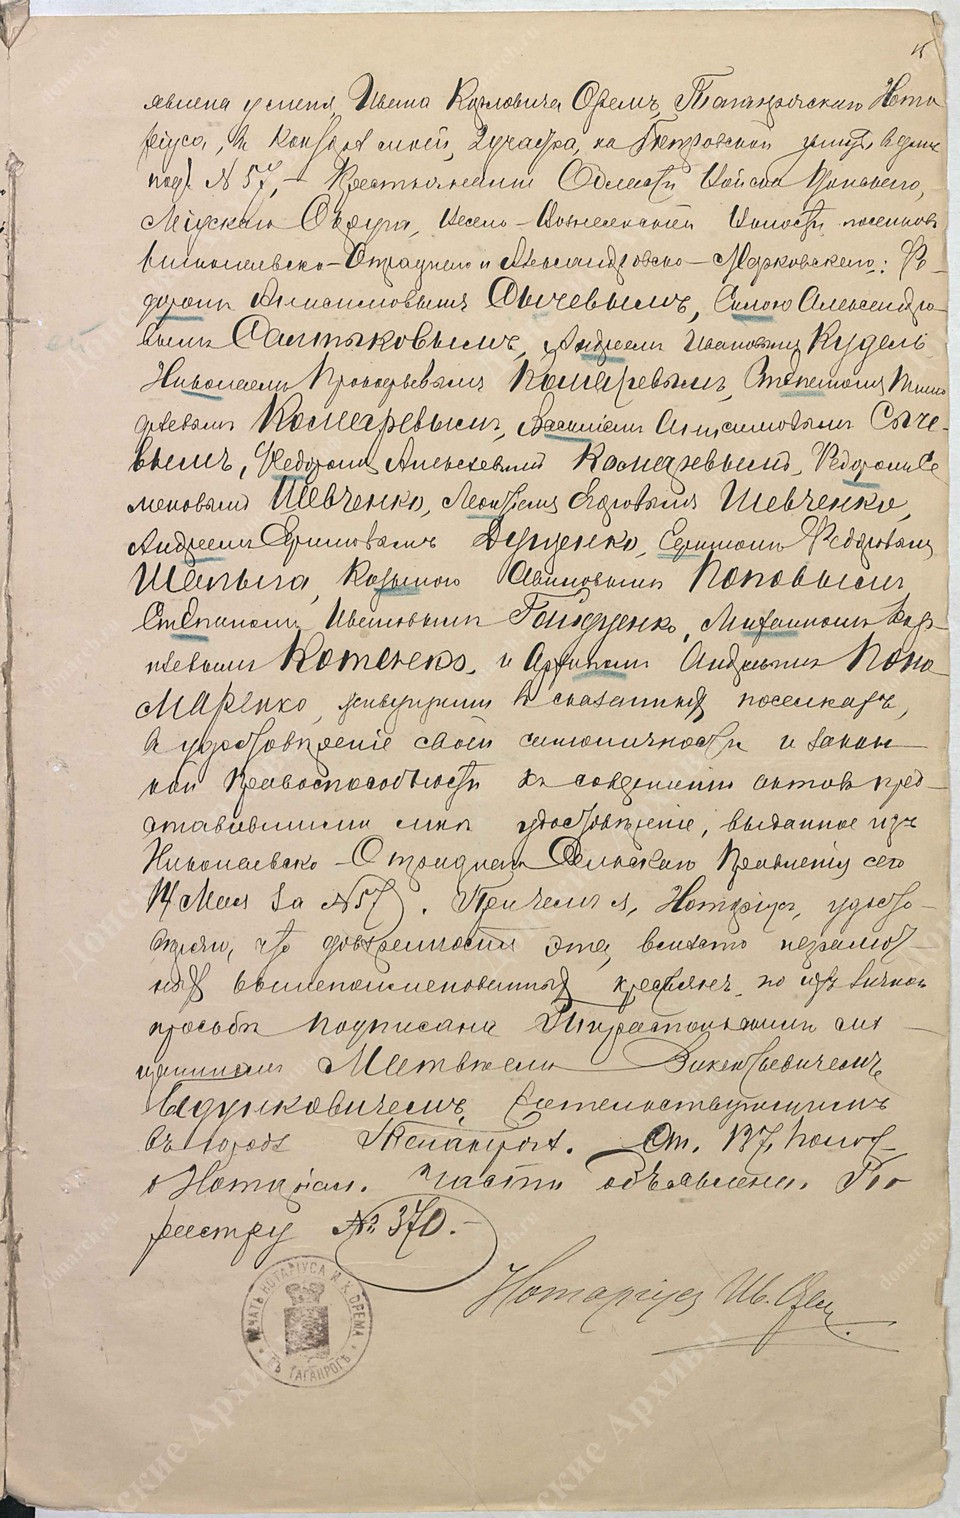 явлена у меня, Ивана Карловича Орем, Таганрогскаго Нота
ріуса, въ конторѣ моей, 2 участка, на Петровской улицѣ въ домѣ
подъ № 57, – Крестьянами Области Войска Донского,
Міусскаго Округа, Весело-Вознесенской Волости поселковъ
Николаевско-Отраднаго и Александровско-Марковскаго: Ѳе-
доромъ Анисимовымъ Сычевымъ, Силою Александро-
вымъ Салтыковымъ, Андреемъ Ивановымъ Кудель
Николаемъ Прокофьевымъ Комаревымъ, Степаномъ Тимо
фѣевымъ Комаревымъ, Василіемъ Анисимовымъ Сыче-
вымъ, Ѳедоромъ Алексѣевымъ Комаревымъ, Ѳедоромъ Се
меновымъ Шевченко, Леонтіемъ Шевченко,
Андреемъ Ефимовымъ Дущенко, Ефимомъ Ѳедоровымъ
Шепыга, Козьмою Поповымъ
Степаномъ Ивановымъ Гайдуценко, Михаиломъ
Котенко, и Архипомъ Андреевымъ Поно
маренко, живущими въ сказанныхъ поселкахъ,
въ удостовѣреніе своей самоличности и закон
ной правоспособности къ совершенію актовъ пред-
ставившими мнѣ удостовѣреніе, выданное изъ
Николаевско-Отраднаго Сельскаго Правленія сего
14 Мая за № 57. При чемъ я, Нотаріусъ, удосто-
вѣряю, что довѣренность эта, вмѣсто неграмот-
ныхъ вышепоименованныхъ крестьянъ, по ихъ личной
просьбѣ подписана Таганрогскимъ мѣ-
щаниномъ Матвѣемъ Викентьевичемъ
жительствующимъ
въ городѣ Таганрогѣ. Ст. 137, Полож.
о Нотаріал. части объявлена. По
реестру № 370.–
Нотаріусъ Ив. Орем.
ПЕЧАТЬ НОТАРІУСА И. К. ОРЕМА
ВЪ ТАГАНРОГѢ